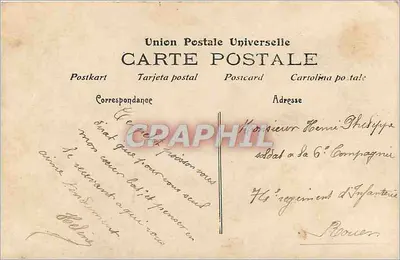 Union Postale Universelle
CARTE POSTALE
Postkart Tarjeta postal Postcard Cartolina postale
Correspondance Adresse
Ce
que pour vous seul
mon cœur bat et penser en
se a qui vous
aime tendrement
Hélène
CPAPHIL
Monsieur Henri Phelippe
soldat a la 6e Compagnie
74e regiment d'Infanterie
Rouen